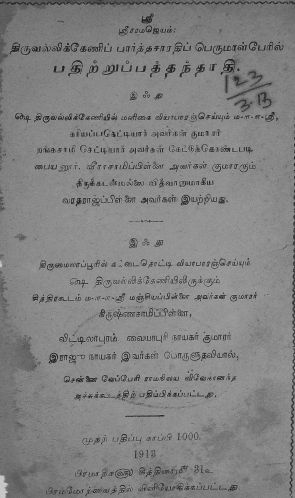 ஸ்ரீ
ஸ்ரீராமஜெயம்:
திருவல்லிக்கேணிப் பார்த்தசாரதிப் பெருமாள்பேரில்
பதிற்றுப்பத்தந்தாதி.
123
3·13
இஃது
ஷெ திருவல்லிக்கேணியில் மளிகை வியாபாரஞ்செய்யும் ம-ள-ள-ஸ்ரீ,
கரியப்பசெட்டியார் அவர்கள் குமாரர்
ரங்கசாமி செட்டியார் அவர்கள் கேட்டுக்கொண்டபடி
பையனூர். வீராசாமிப்பிள்ளை அவர்கள் குமாரரும்
திருக்கடன்மல்லை வித்வானுமாகிய
வரதராஜப்பிள்ளை அவர்கள் இயற்றியது.
இஃது
திருமைலாப்பூரில் வியாபாரஞ்செய்யும்
ஷெ திருவல்லிக்கேணியிலிருக்கும்
சித்திரகூடம் ம-ள-ள-ஸ்ரீ மஞ்சியப்பிள்ளை அவர்கள் குமாரர்
கிருஷ்ணசாமிப்பிள்ளை,
விட்டிலாபுரம் வையாபுரி நாயகர் குமாரர்
இராஜு நாயகர் இவர்கள் பொருளுதவியால்,
சென்னை வேப்பேரி விவேகானந்த
அச்சுக்கூடத்திற் பதிப்பிக்கப்பட்டது.
முதற் பதிப்பு காப்பி 1000.
1913
சித்திரை 31
பிரமமோற்சவத்தில் வினியோகிக்கப்பட்டது.